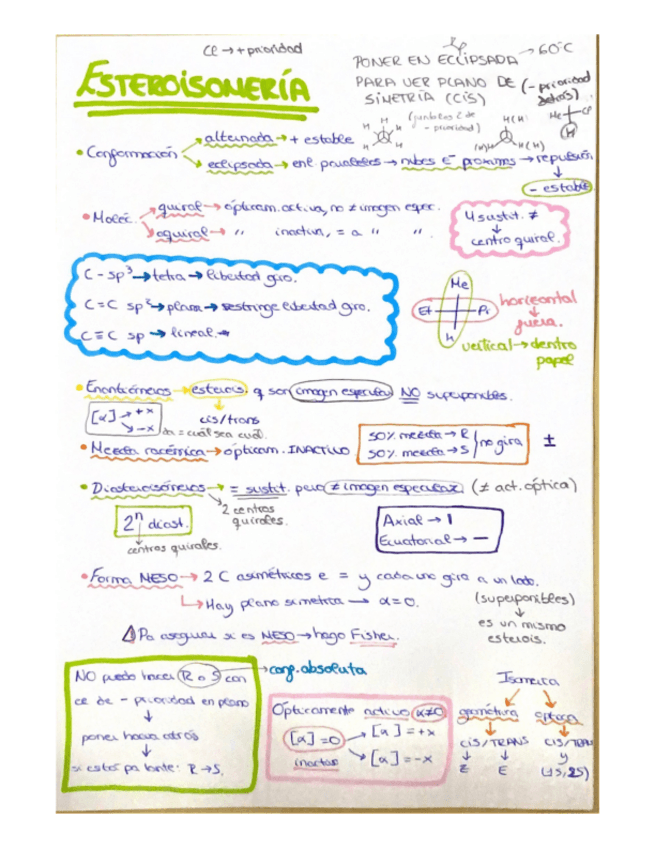 Cl → + prioridad
ESTEROISOMERÍA
PONER EN ECLIPSADA → 60°C
PARA VER PLANO DE (- prioridad
SIMETRÍA (CIS) detrás)
(juntar los 2 de
- prioridad)
Me Cl
H
H H H H H H
H(H) (H)H H(H)
• Conformación
alternada → + estable
eclipsada → enl. paralelos → nubes e⁻ próximas → repulsión
↓
- estable
• Moléc.
quiral → ópticam. activa, no ≠ imagen espec.
aquiral → " inactiva, = a " ".
4 sustit. ≠
↓
centro quiral.
C - sp³ → tetra → libertad giro.
C = C sp² → plana → restringe libertad giro.
C ≡ C sp → lineal. →
Me
Et Pr
H
horizontal
↓
fuera.
vertical → dentro
papel
• Enantiómeros → esterois. q son imagen especular NO superponibles.
↓
cis/trans
[α] → +x
→ -x
da = cuál sea cuál.
• Mezcla racémica → ópticam. INACTIVO
50% mezcla → R
50% mezcla → S
no gira
±
• Diasteroisómeros → = sustit. pero ≠ imagen especular. (≠ act. óptica)
2 centros
quirales.
2ⁿ diast.
↓
centros quirales.
Axial → |
Ecuatorial → —
• Forma MESO → 2 C asimétricos e = y cada uno gira a un lado.
↳ Hay plano simetría → α = 0.
(superponibles)
↓
es un mismo
esterois.
⚠ Pa asegurar si es MESO → hago Fisher.
NO puedo hacer R o S con → conf. absoluta
el de - prioridad en plano
↓
poner hacia atrás
↓
si está pa lante: R → S.
Ópticamente activo α≠0
[α] = 0 → [α] = +x
inactivo → [α] = -x
Isomería
geométrica óptica
CIS/TRANS CIS/TRANS
↓ ↓ y
Z E (1S, 2S)